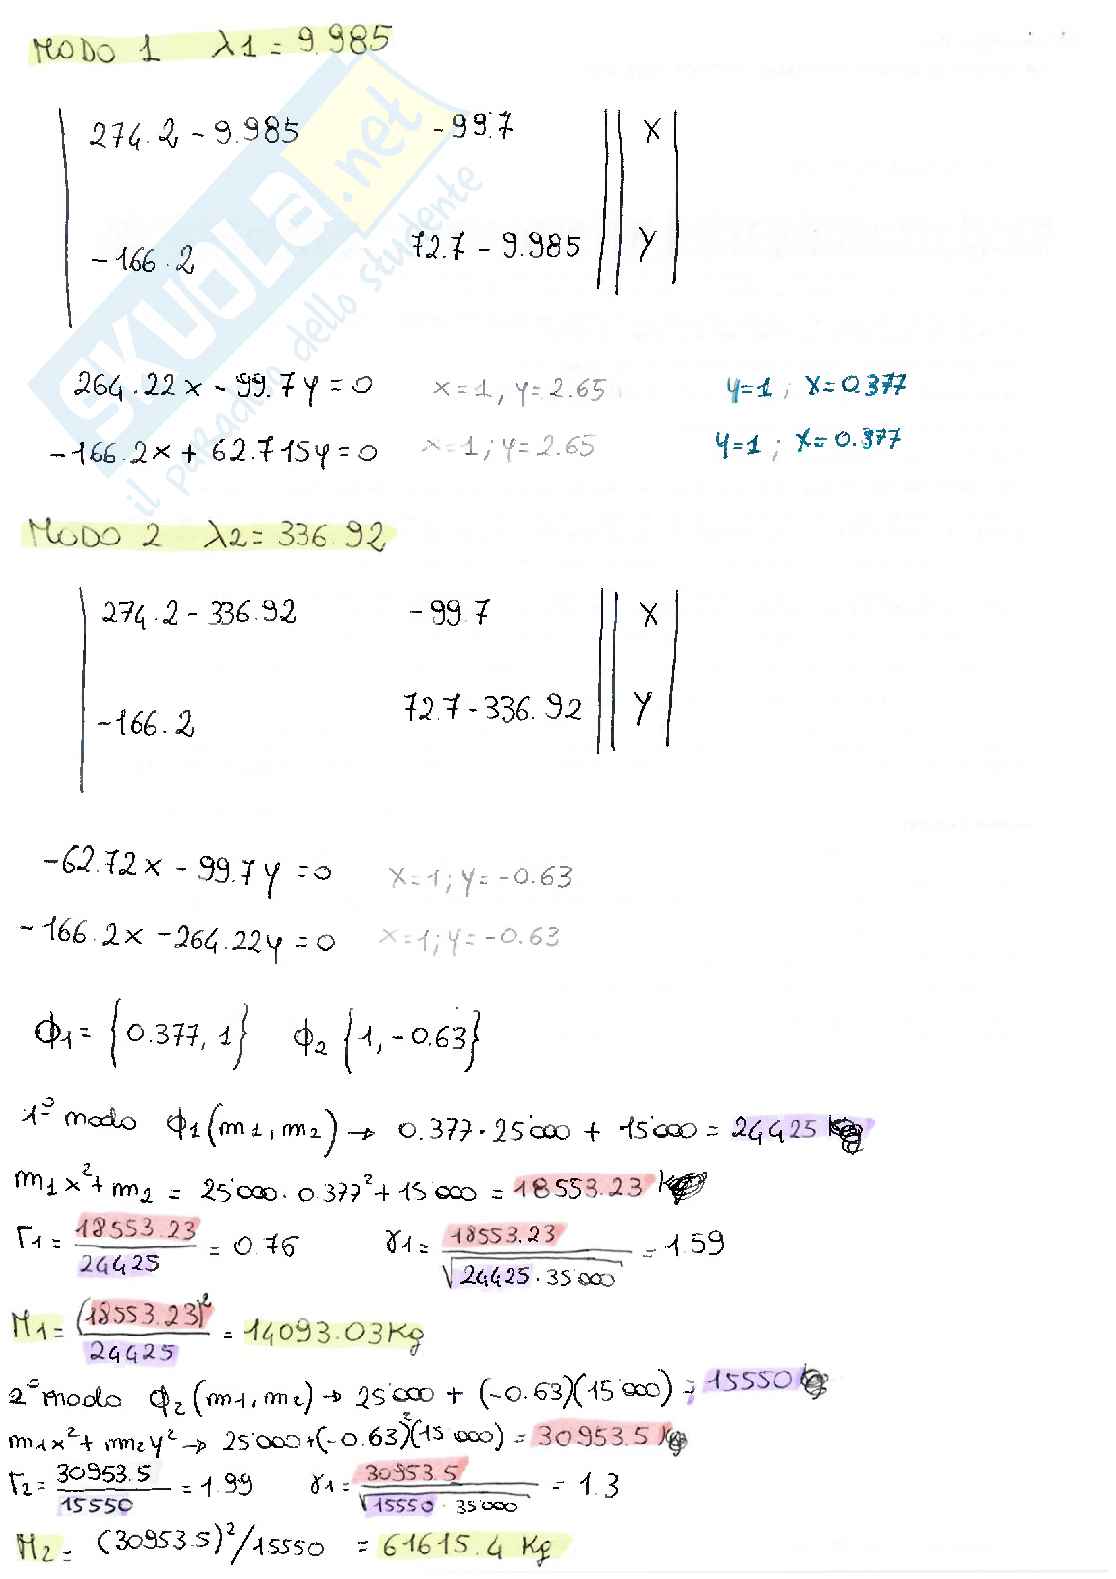 MODO 1 λ1 = 9.985
274.2 - 9.985 -99.7 x
-166.2 72.7 - 9.985 y
264.22x - 99.7y = 0 x=1, y=2.65 y=1; x=0.377
-166.2x + 62.715y = 0 x=1; y=2.65 y=1; x=0.377
MODO 2 λ2= 336.92
274.2 - 336.92 -99.7 x
-166.2 72.7 - 336.92 y
-62.72x - 99.7y = 0 x=1; y=-0.63
-166.2x - 264.22y = 0 x=1; y=-0.63
ϕ1= {0.377, 1} ϕ2 {1, -0.63}
1° modo ϕ1(m1, m2) → 0.377 · 25'000 + 15'000 = 24425
m1x²+ m2 = 25'000 · 0.377² + 15'000 = 18553.23
r1 = 18553.23 / 24425 = 0.76 γ1 = 18553.23 / √24425 · 35'000 = 1.59
M1 = (18553.23)² / 24425 = 14093.03 Kg
2° modo ϕ2 (m1, m2) → 25'000 + (-0.63)(15'000) = 15550
m1x²+ m2y² → 25'000 + (-0.63)²(15'000) = 30953.5
r2 = 30953.5 / 15550 = 1.99 γ1 = 30953.5 / √15550 · 35'000 = 1.3
M2 = (30953.5)²/15550 = 61615.4 Kg
SKUOLa.net
il paradiso dello studente